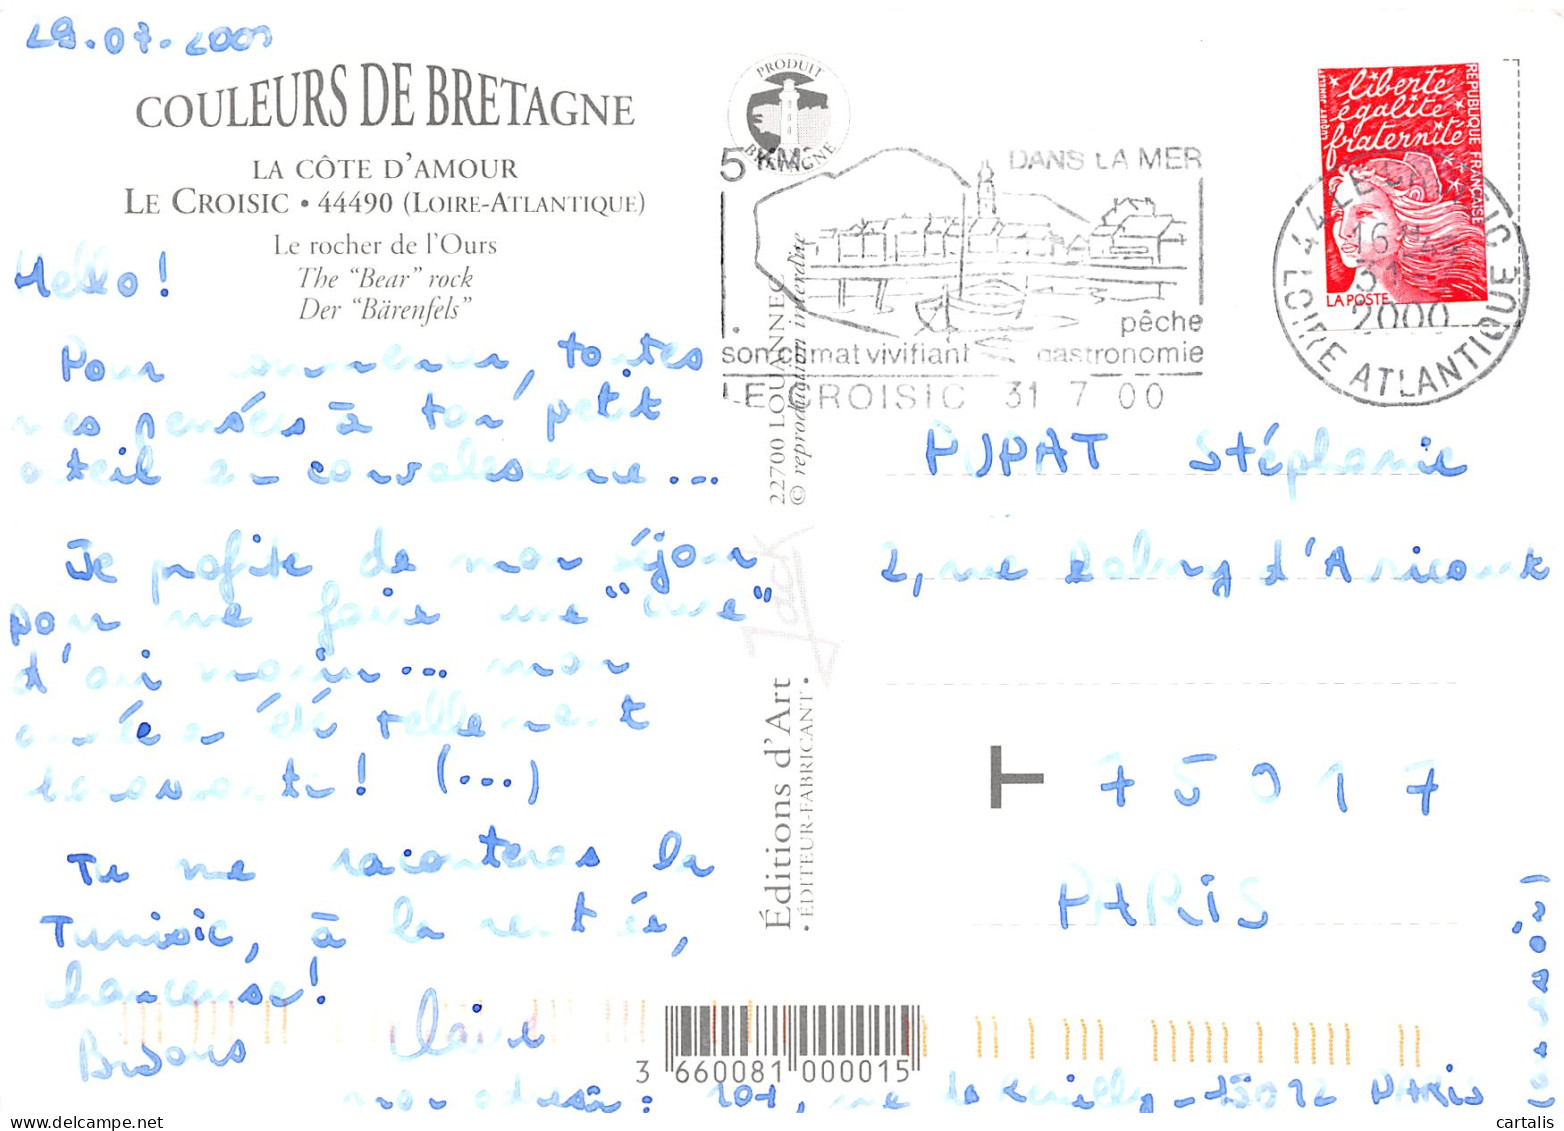 29.07.2000
COULEURS DE BRETAGNE
LA CÔTE D'AMOUR
LE CROISIC • 44490 (LOIRE-ATLANTIQUE)
Le rocher de l'Ours
The "Bear" rock
Der "Bärenfels"
Hello!
Pour commencer, toutes
mes pensées à ton petit
orteil en convalescence...
Je profite de mon séjour
pour me faire une "cure"
d'air marin... mon
année a été tellement
! (...)
Tu me raconteras la
Tunisie, à la rentrée,
chanceuse!
Bisous Claire
mon adresse : 101, rue de Reuilly - 75012 PARIS
PRODUIT
BRETAGNE
5 KMS DANS LA MER
pêche
son climat vivifiant gastronomie
LE CROISIC 31 7 00
liberté
égalité
fraternité
RÉPUBLIQUE FRANÇAISE
LUQUET
LA POSTE
44 LE CROISIC
16 H
31
2000
LOIRE ATLANTIQUE
22700 LOUANNEC
© reproduction interdite
Jack
Éditions d'Art
• ÉDITEUR-FABRICANT •
PUPAT Stéphanie
2, rue d'Aricourt
T 75017
PARIS
3 660081 000015
cartalis